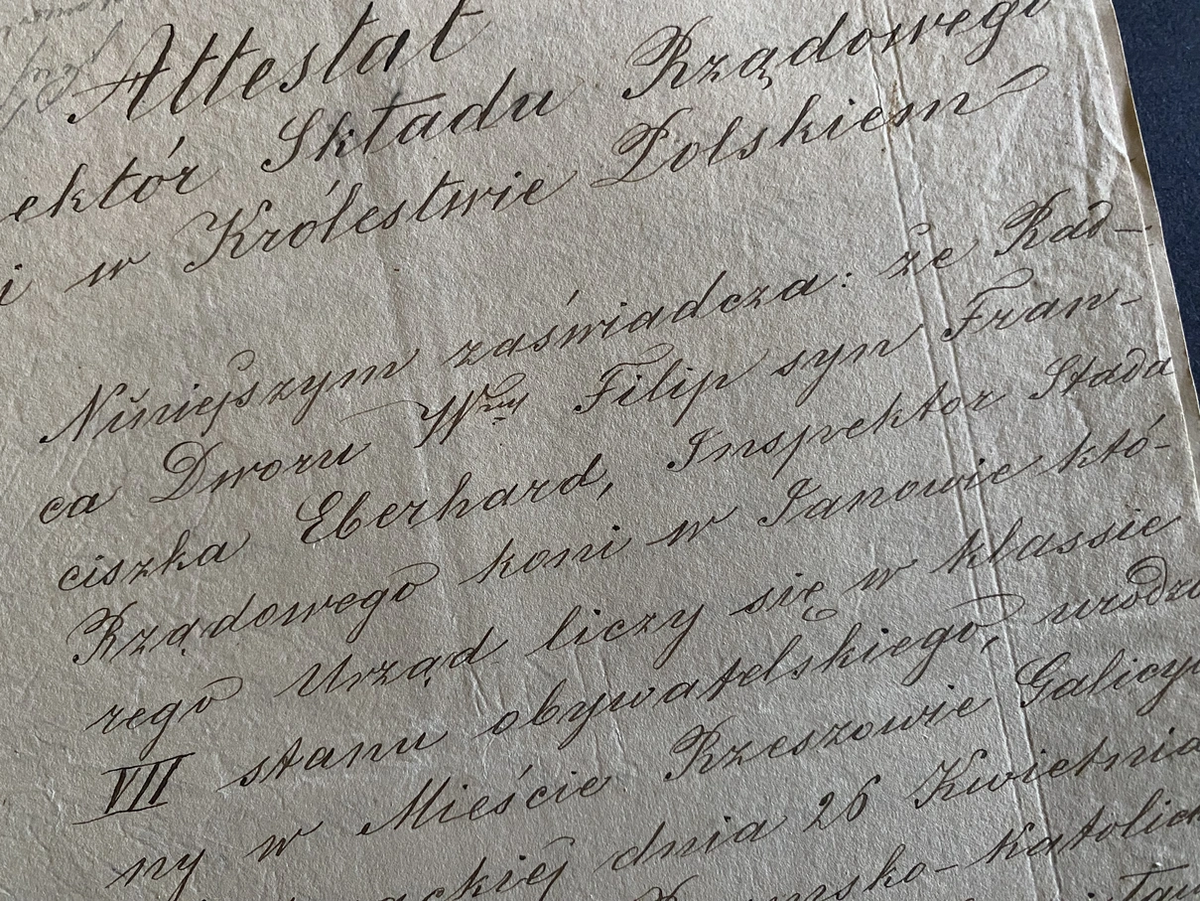 Attestat
ektór Składu Rządowego
i w Królestwie Polskiem
Niniejszym zaświadcza: że Rad-
ca Dworu Wny Filip syn Fran-
ciszka Eberhard, Inspektor Stada
Rządowego koni w Janowie któ-
rego Urząd liczy się w klassie
VII stanu obywatelskiego, urodzo
ny w Mieście Rzeszowie Galicy
ackiej dnia 26 Kwietnia
Katolic